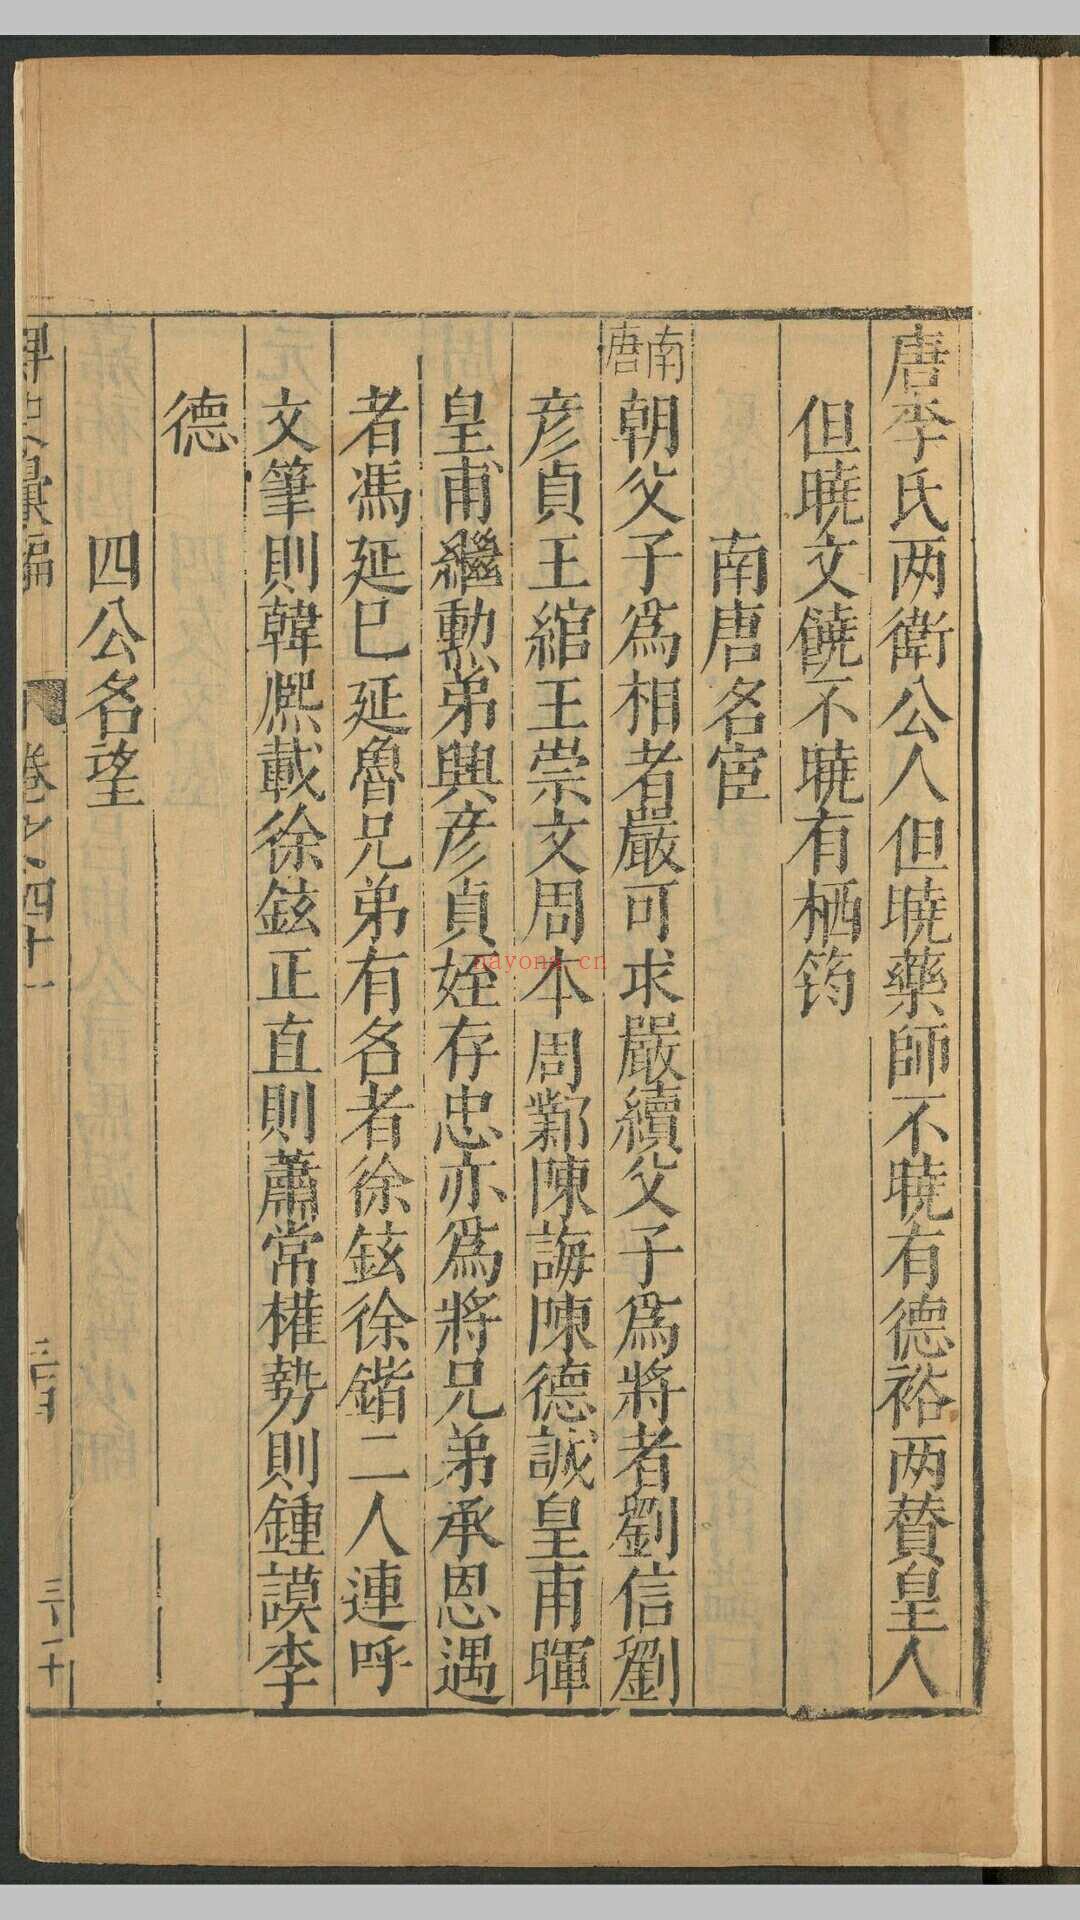 唐李氏两衛公人但曉藥師不曉有德裕两賛皇人
但曉文饒不曉有栖筠
南唐名宦
南唐朝父子爲相者嚴可求嚴續父子爲將者劉信劉
彥貞王綰王崇文周本周鄴陳誨陳德誠皇甫暉
皇甫繼勲弟興彥貞姪存忠亦爲將兄弟承恩遇
者馮延巳延魯兄弟有名者徐鉉徐鍇二人連呼
文筆則韓熈載徐鉉正直則蕭常權勢則鍾謨李
德
四公名望
卷之四十一
nayona.cn